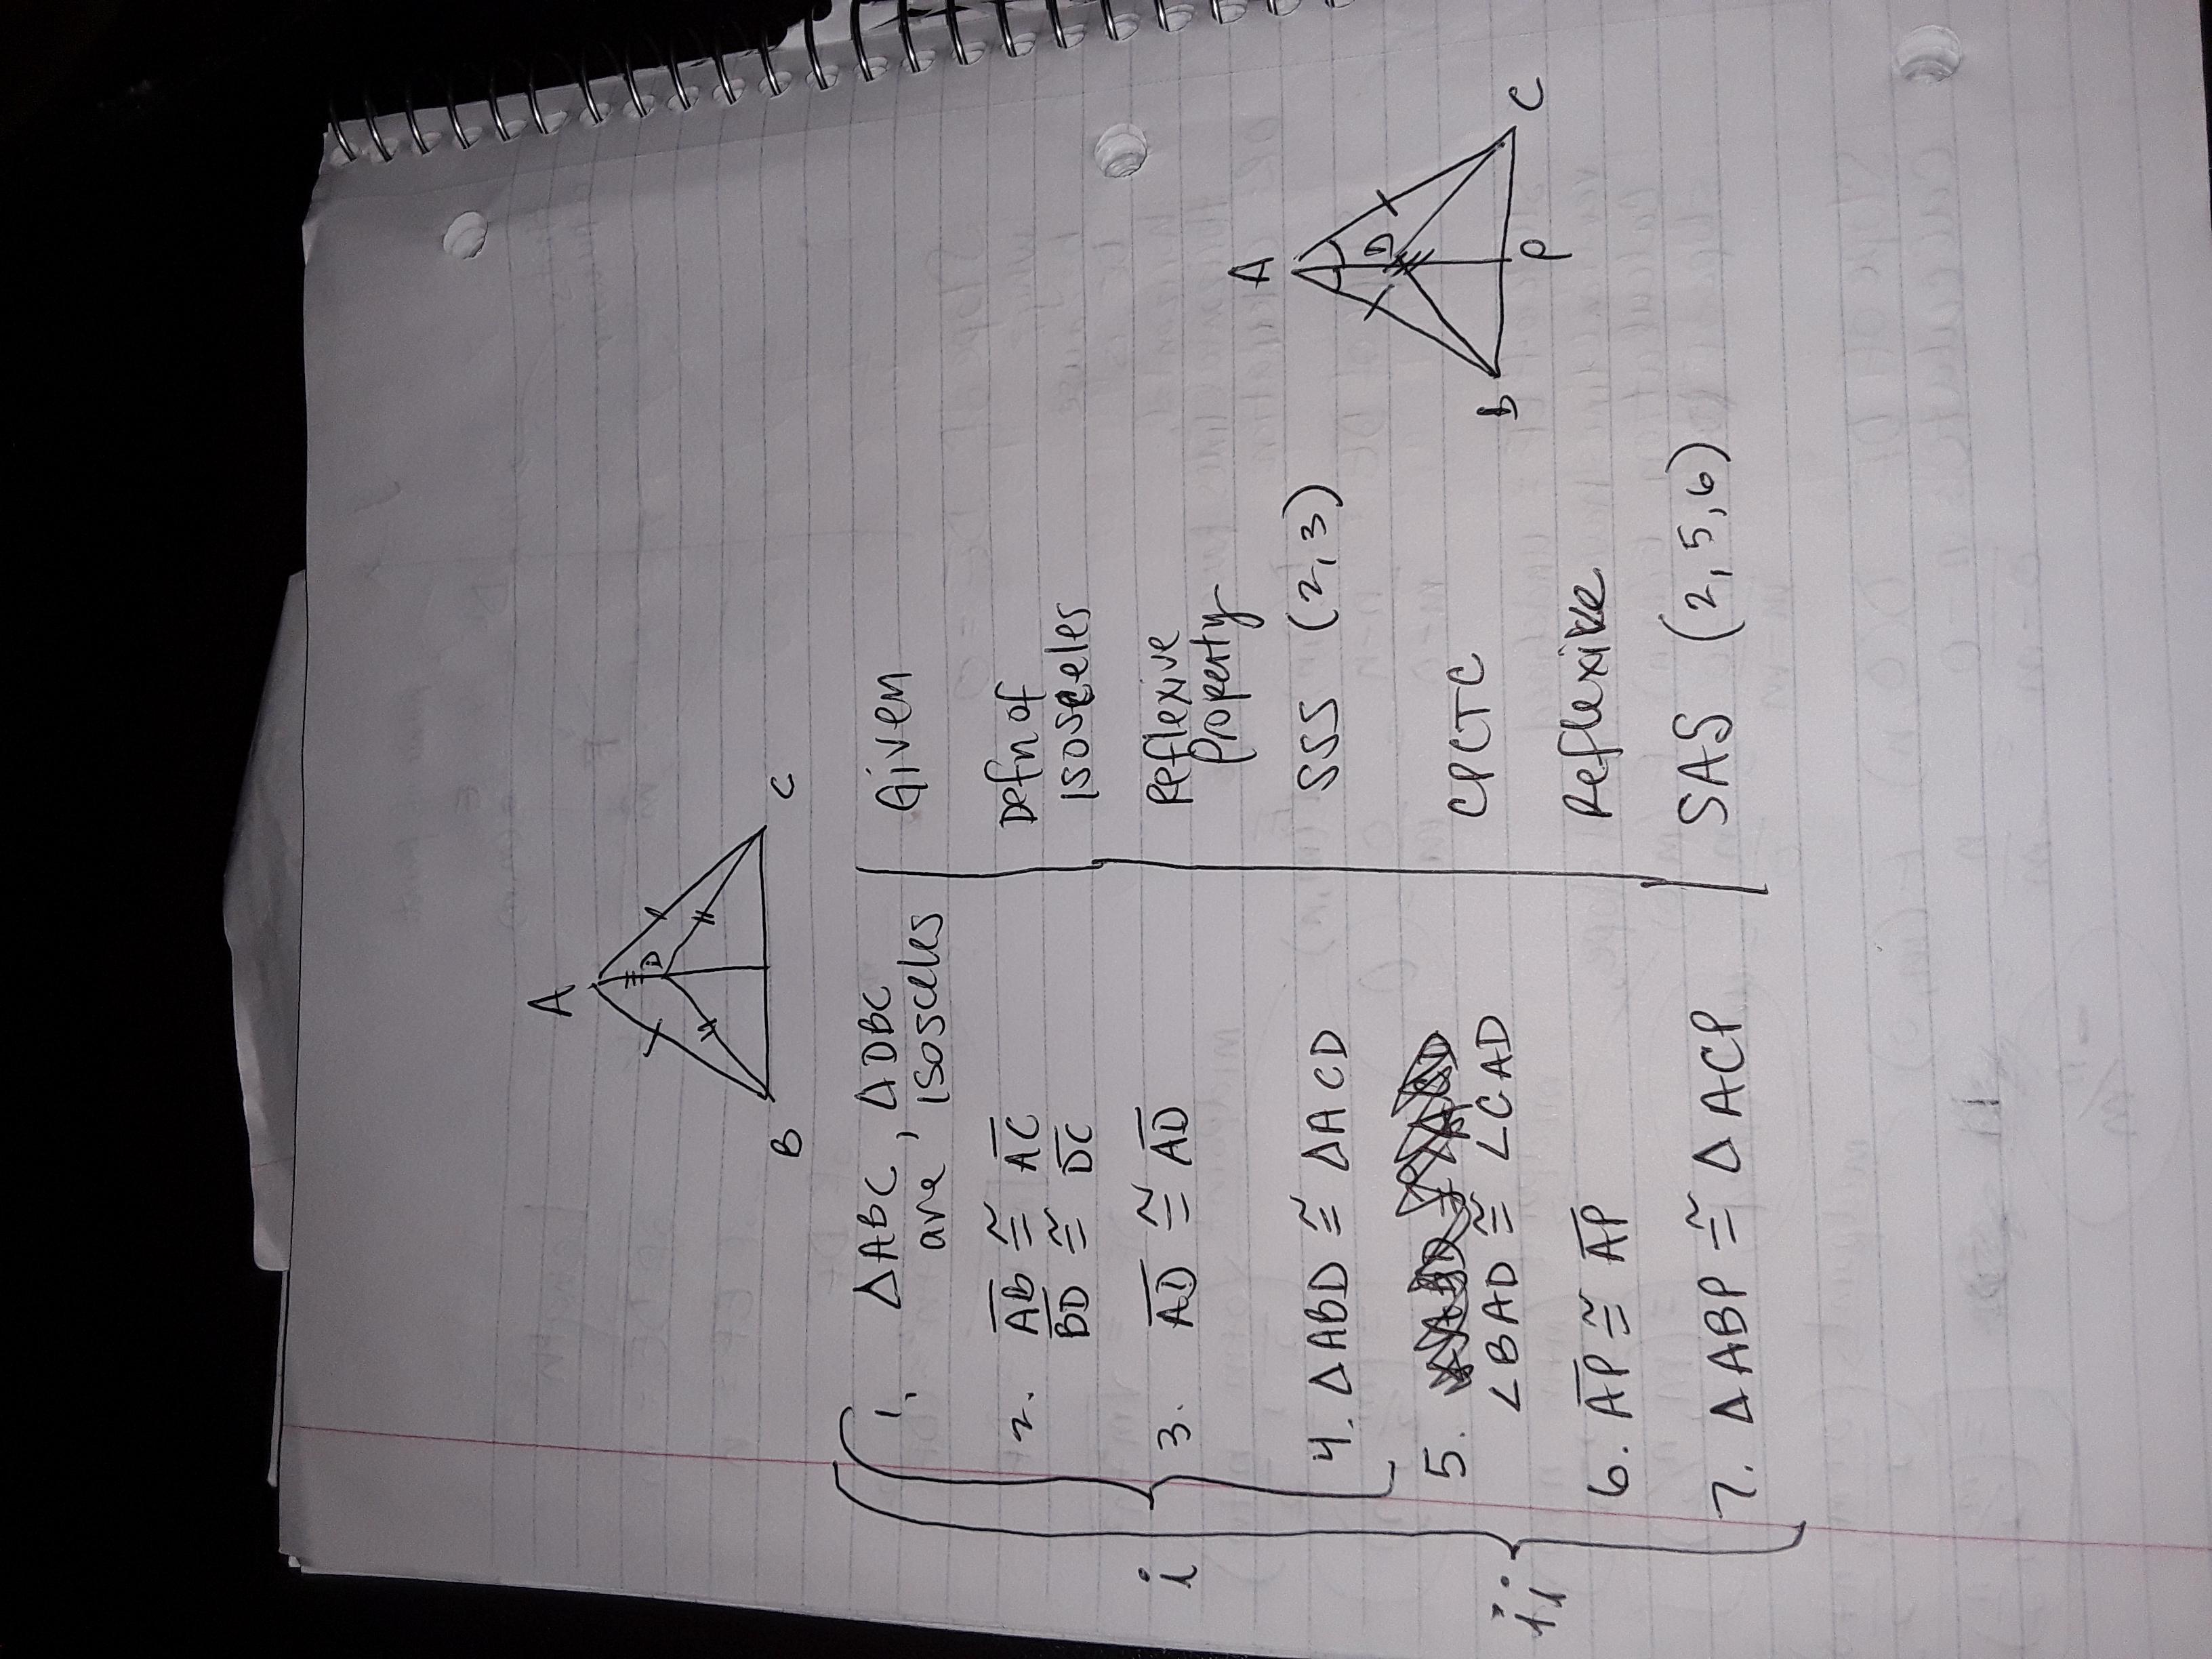 A
D
B C
1. △ABC, △DBC | Given
are isosceles
2. A̅B̅ ≅ A̅C̅ | Defn of
B̅D̅ ≅ D̅C̅ | isosceles
3. A̅D̅ ≅ A̅D̅ | Reflexive
Property
4. △ABD ≅ △ACD | SSS (2,3)
5. ∠BAD ≅ ∠CAD | CPCTC
6. A̅P̅ ≅ A̅P̅ | Reflexive
7. △ABP ≅ △ACP | SAS (2,5,6)
i
ii
A
D
B P C